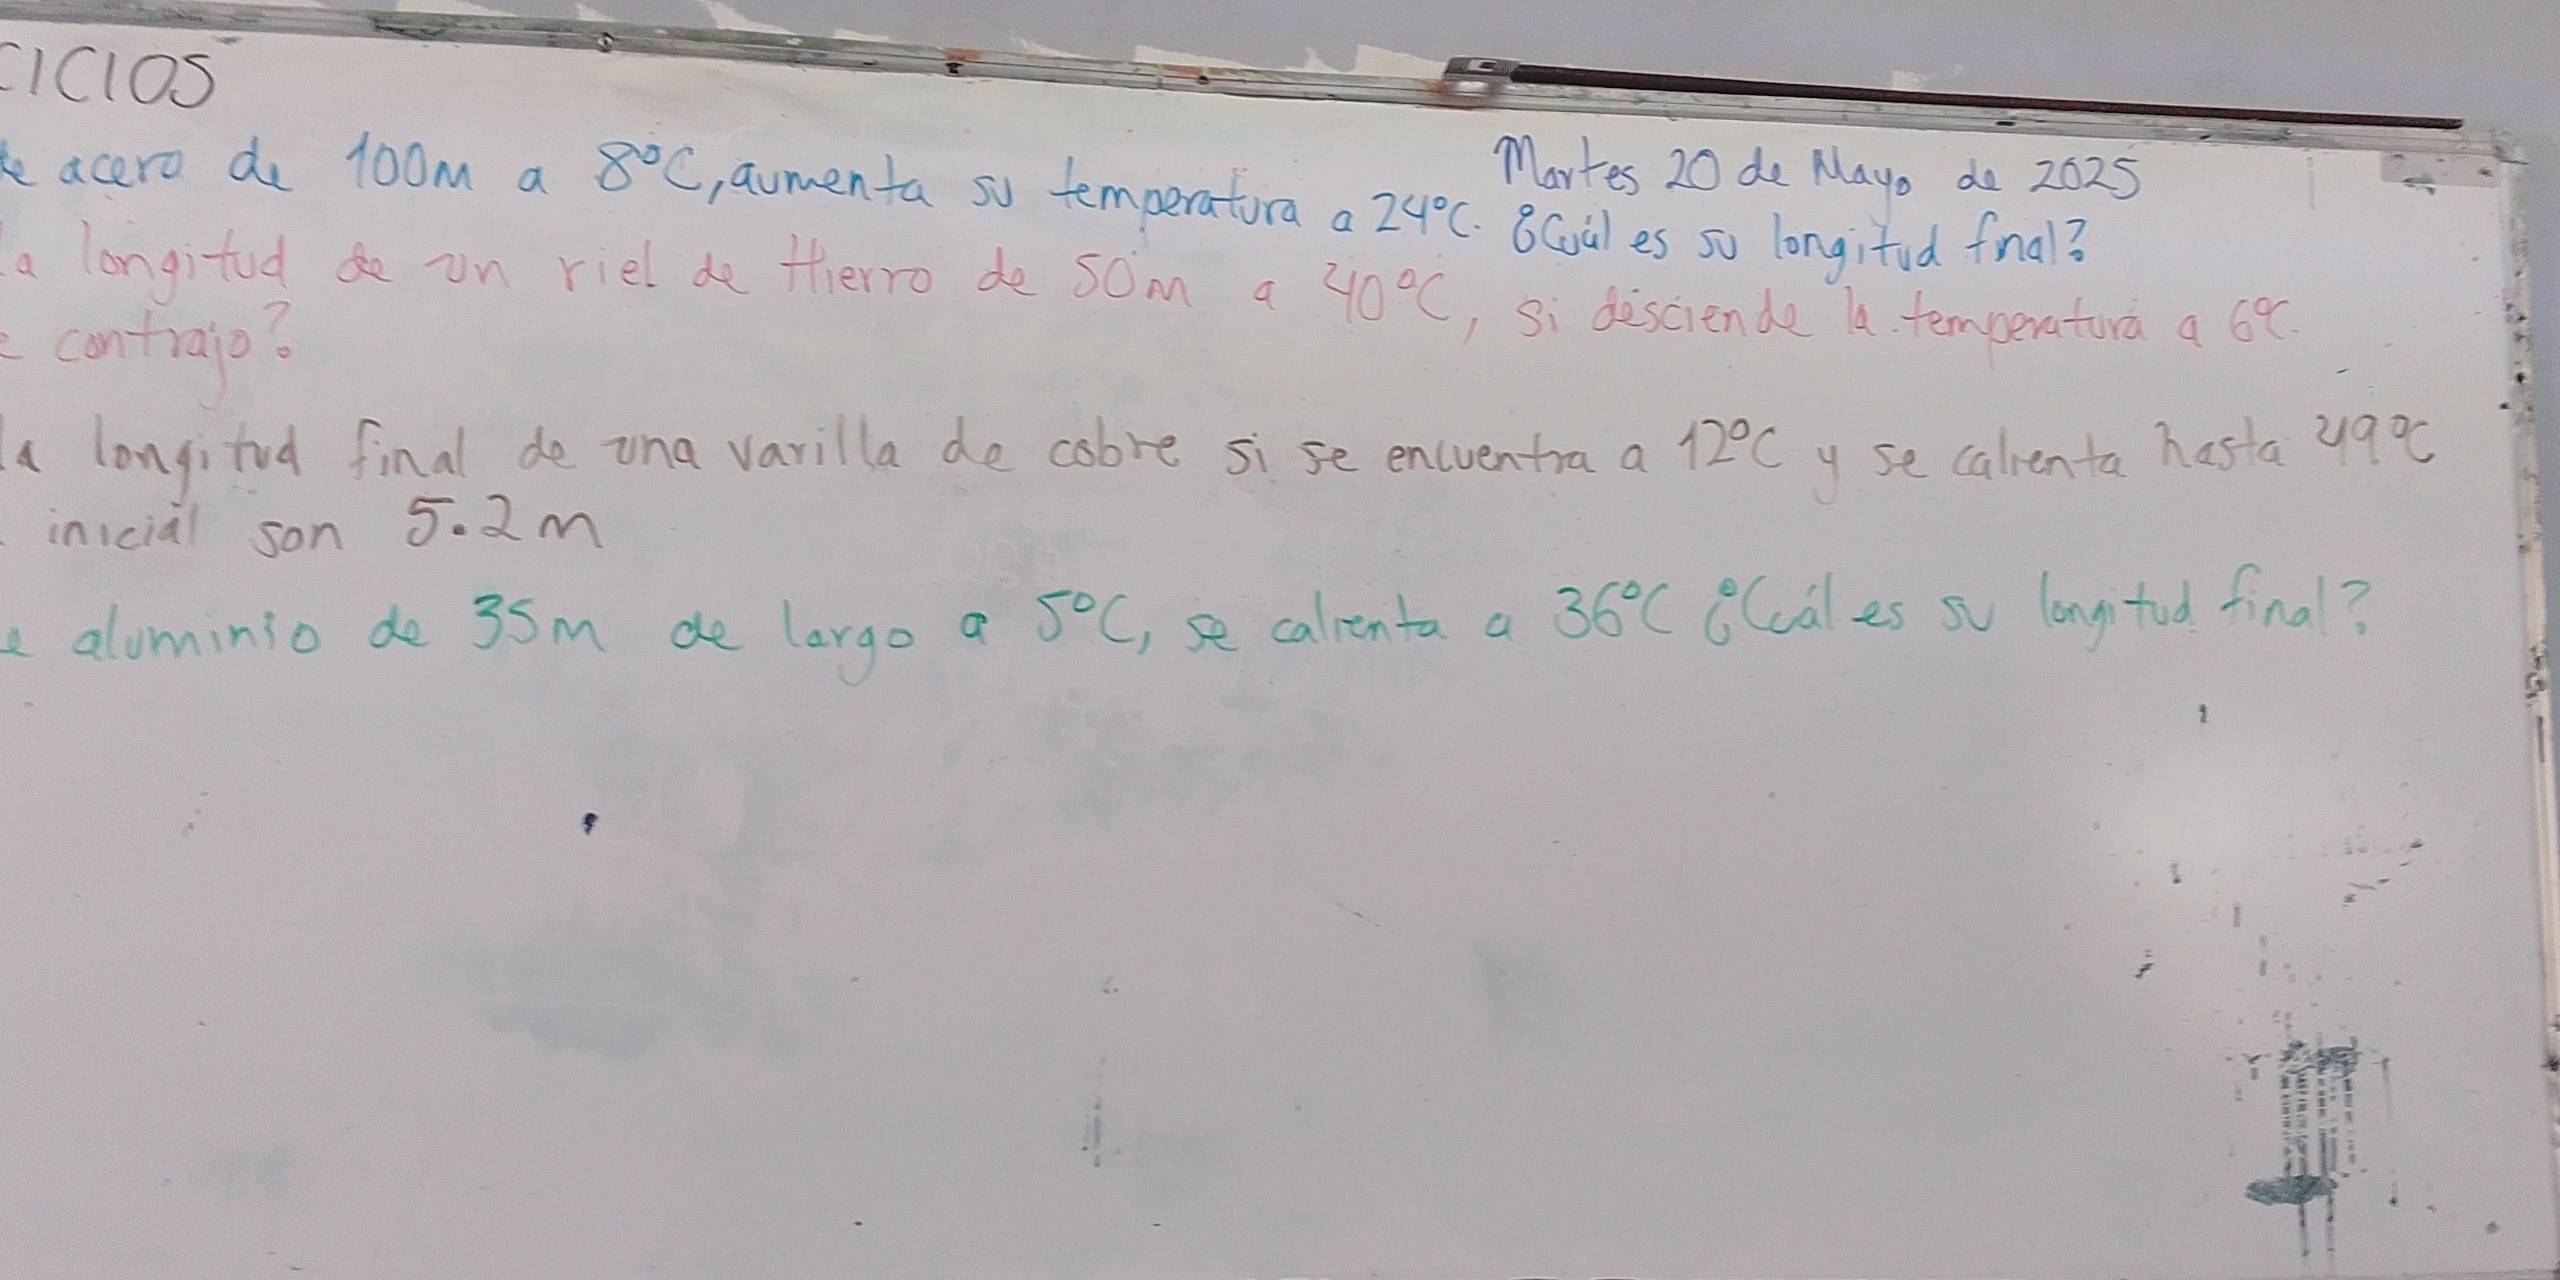 CICIOS
Martes 20 de Mayo de 2025
de acero de 100m a 8°C, aumenta su temperatura a 24°C. ¿Cuál es su longitud final?
la longitud de un riel de Hierro de 50m a 40°C, si desciende la temperatura a 6°C.
e contrajo?
la longitud final de una varilla de cobre si se encuentra a 12°C y se calienta hasta 49°C
inicial son 5.2m
e aluminio de 35m de largo a 5°C, se calienta a 36°C ¿Cuál es su longitud final?